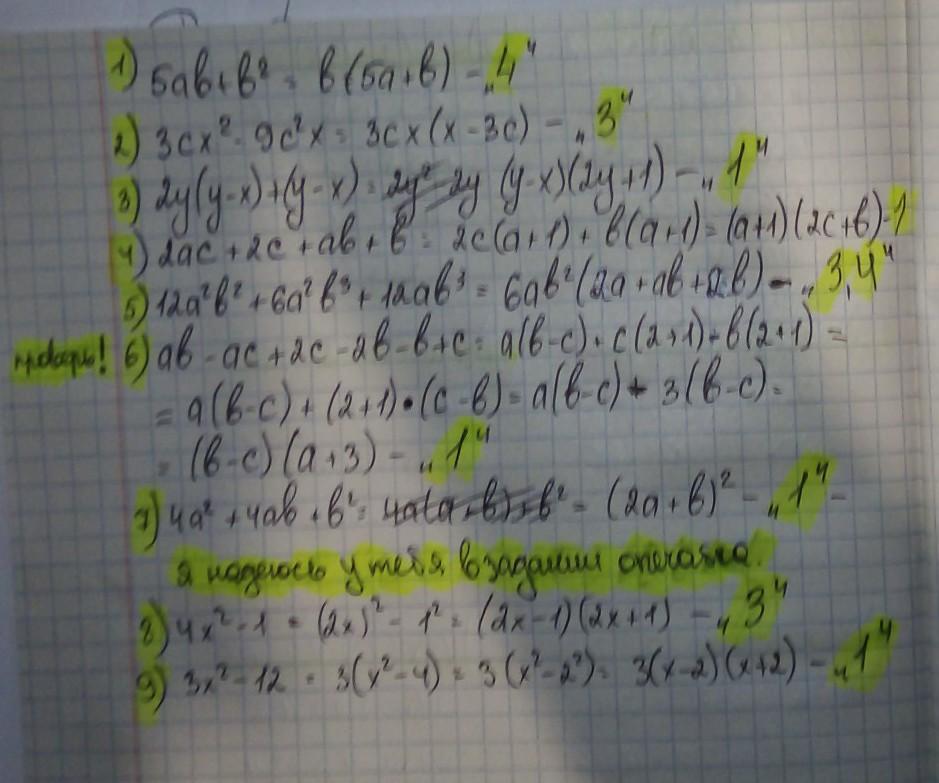 1) 5ab+b² = b(5a+b) - „4"
2) 3cx² - 9c²x = 3cx(x-3c) - „3"
3) 2y(y-x)+(y-x) = 2y² 2y (y-x)(2y+1) - „1"
4) 2ac+2c+ab+b = 2c(a+1)+b(a+1) = (a+1)(2c+b)-1
5) 12a²b²+6a²b³+12ab³ = 6ab²(2a+ab+2b) - „3,4"
проверь! 6) ab-ac+2c-2b-b+c = a(b-c)+c(2+1)-b(2+1) =
= a(b-c)+(2+1)•(c-b) = a(b-c)+3(b-c) =
= (b-c)(a+3) - „1"
7) 4a²+4ab+b² = 4a(a+b)+b² = (2a+b)² - „1" -
я надеюсь у тебя в задании опечатка.
8) 4x²-1 = (2x)²-1² = (2x-1)(2x+1) - „3"
9) 3x²-12 = 3(x²-4) = 3(x²-2²) = 3(x-2)(x+2) - „1"